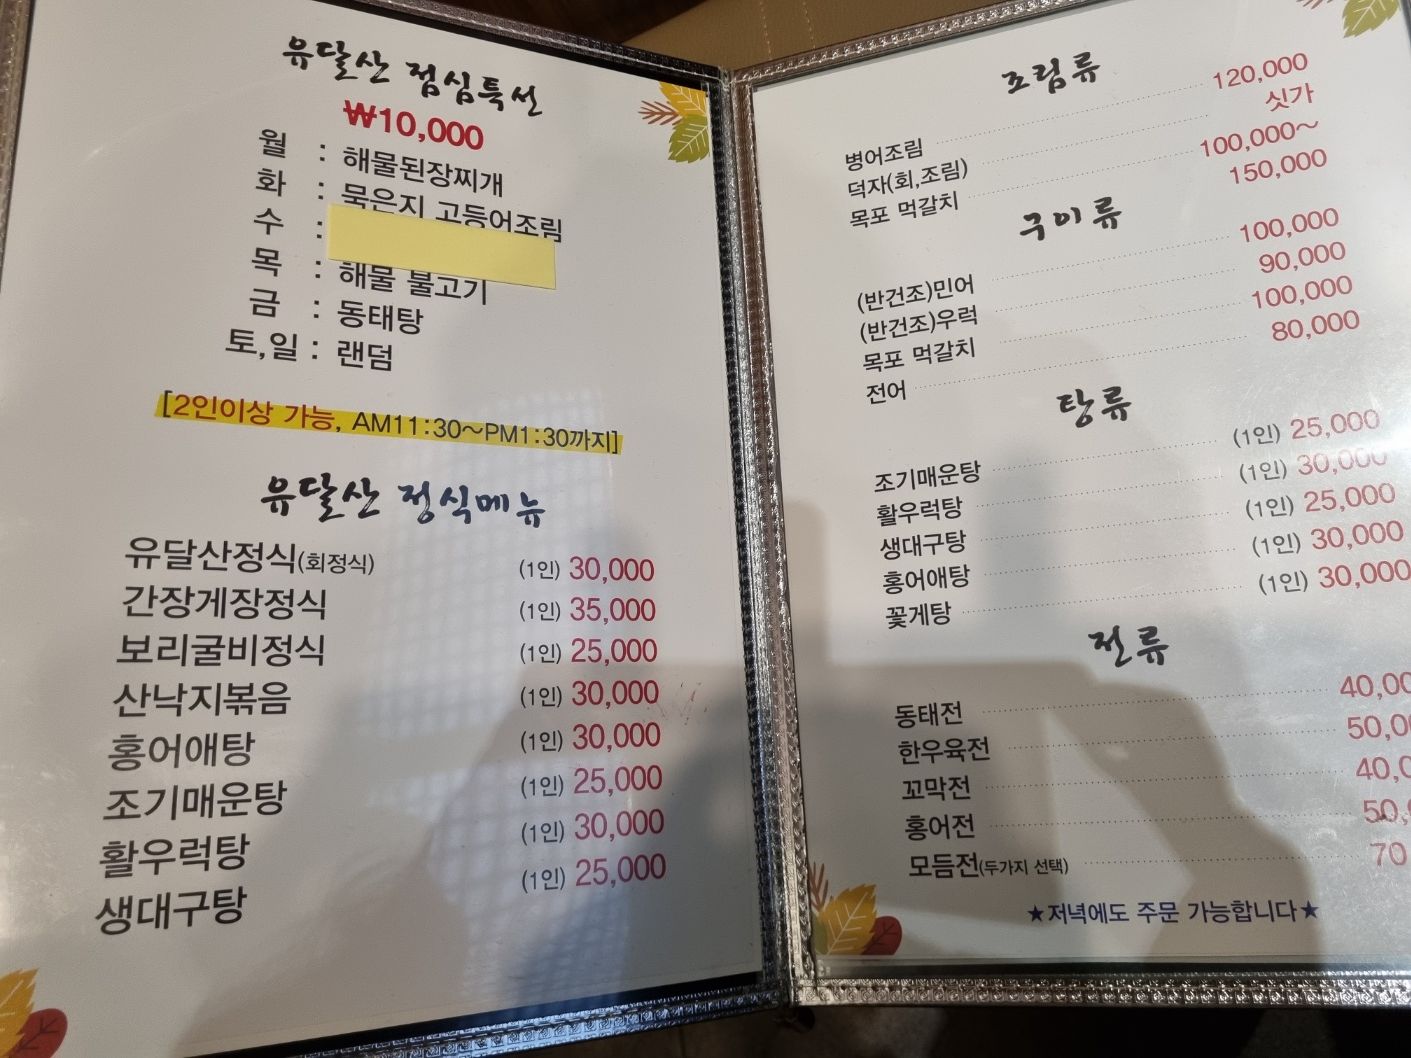 유달산 점심특선
₩10,000
월 : 해물된장찌개
화 : 묵은지 고등어조림
수 :
목 : 해물 불고기
금 : 동태탕
토,일 : 랜덤
[2인이상 가능, AM11:30~PM1:30까지]
유달산 정식메뉴
유달산정식(회정식) (1인) 30,000
간장게장정식 (1인) 35,000
보리굴비정식 (1인) 25,000
산낙지볶음 (1인) 30,000
홍어애탕 (1인) 30,000
조기매운탕 (1인) 25,000
활우럭탕 (1인) 30,000
생대구탕 (1인) 25,000
조림류
병어조림 120,000
덕자(회,조림) 싯가
목포 먹갈치 100,000~
150,000
구이류
(반건조)민어 100,000
(반건조)우럭 90,000
목포 먹갈치 100,000
전어 80,000
탕류
조기매운탕 (1인) 25,000
활우럭탕 (1인) 30,000
생대구탕 (1인) 25,000
홍어애탕 (1인) 30,000
꽃게탕 (1인) 30,000
전류
동태전
한우육전
꼬막전
홍어전
모듬전(두가지 선택)
★저녁에도 주문 가능합니다★